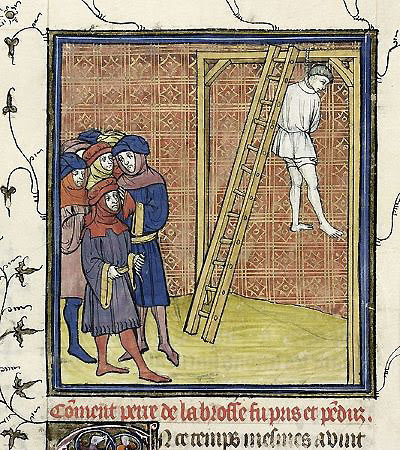 Cõment perre de la broſſe fu pris et pẽduz.
En ce temps meſmes auint